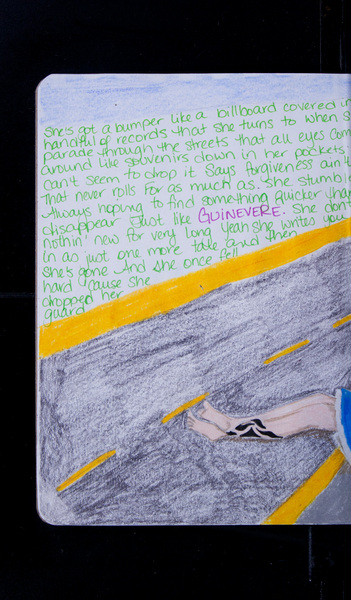 She's got a bumper like a billboard covered in
handful of records that she turns to when s
parade through the streets that all eyes com
around like souvenirs down in her pockets
can't seem to drop it Says forgiveness ain't
That never rolls for as much as. she stumble
Always hoping to find something quicker than
disappear Just like GUINEVERE. She don't
nothin' new for very long Yeah she writes you
in as just one more tale and then
She's gone And she once fell
hard 'cause she
dropped her
guard